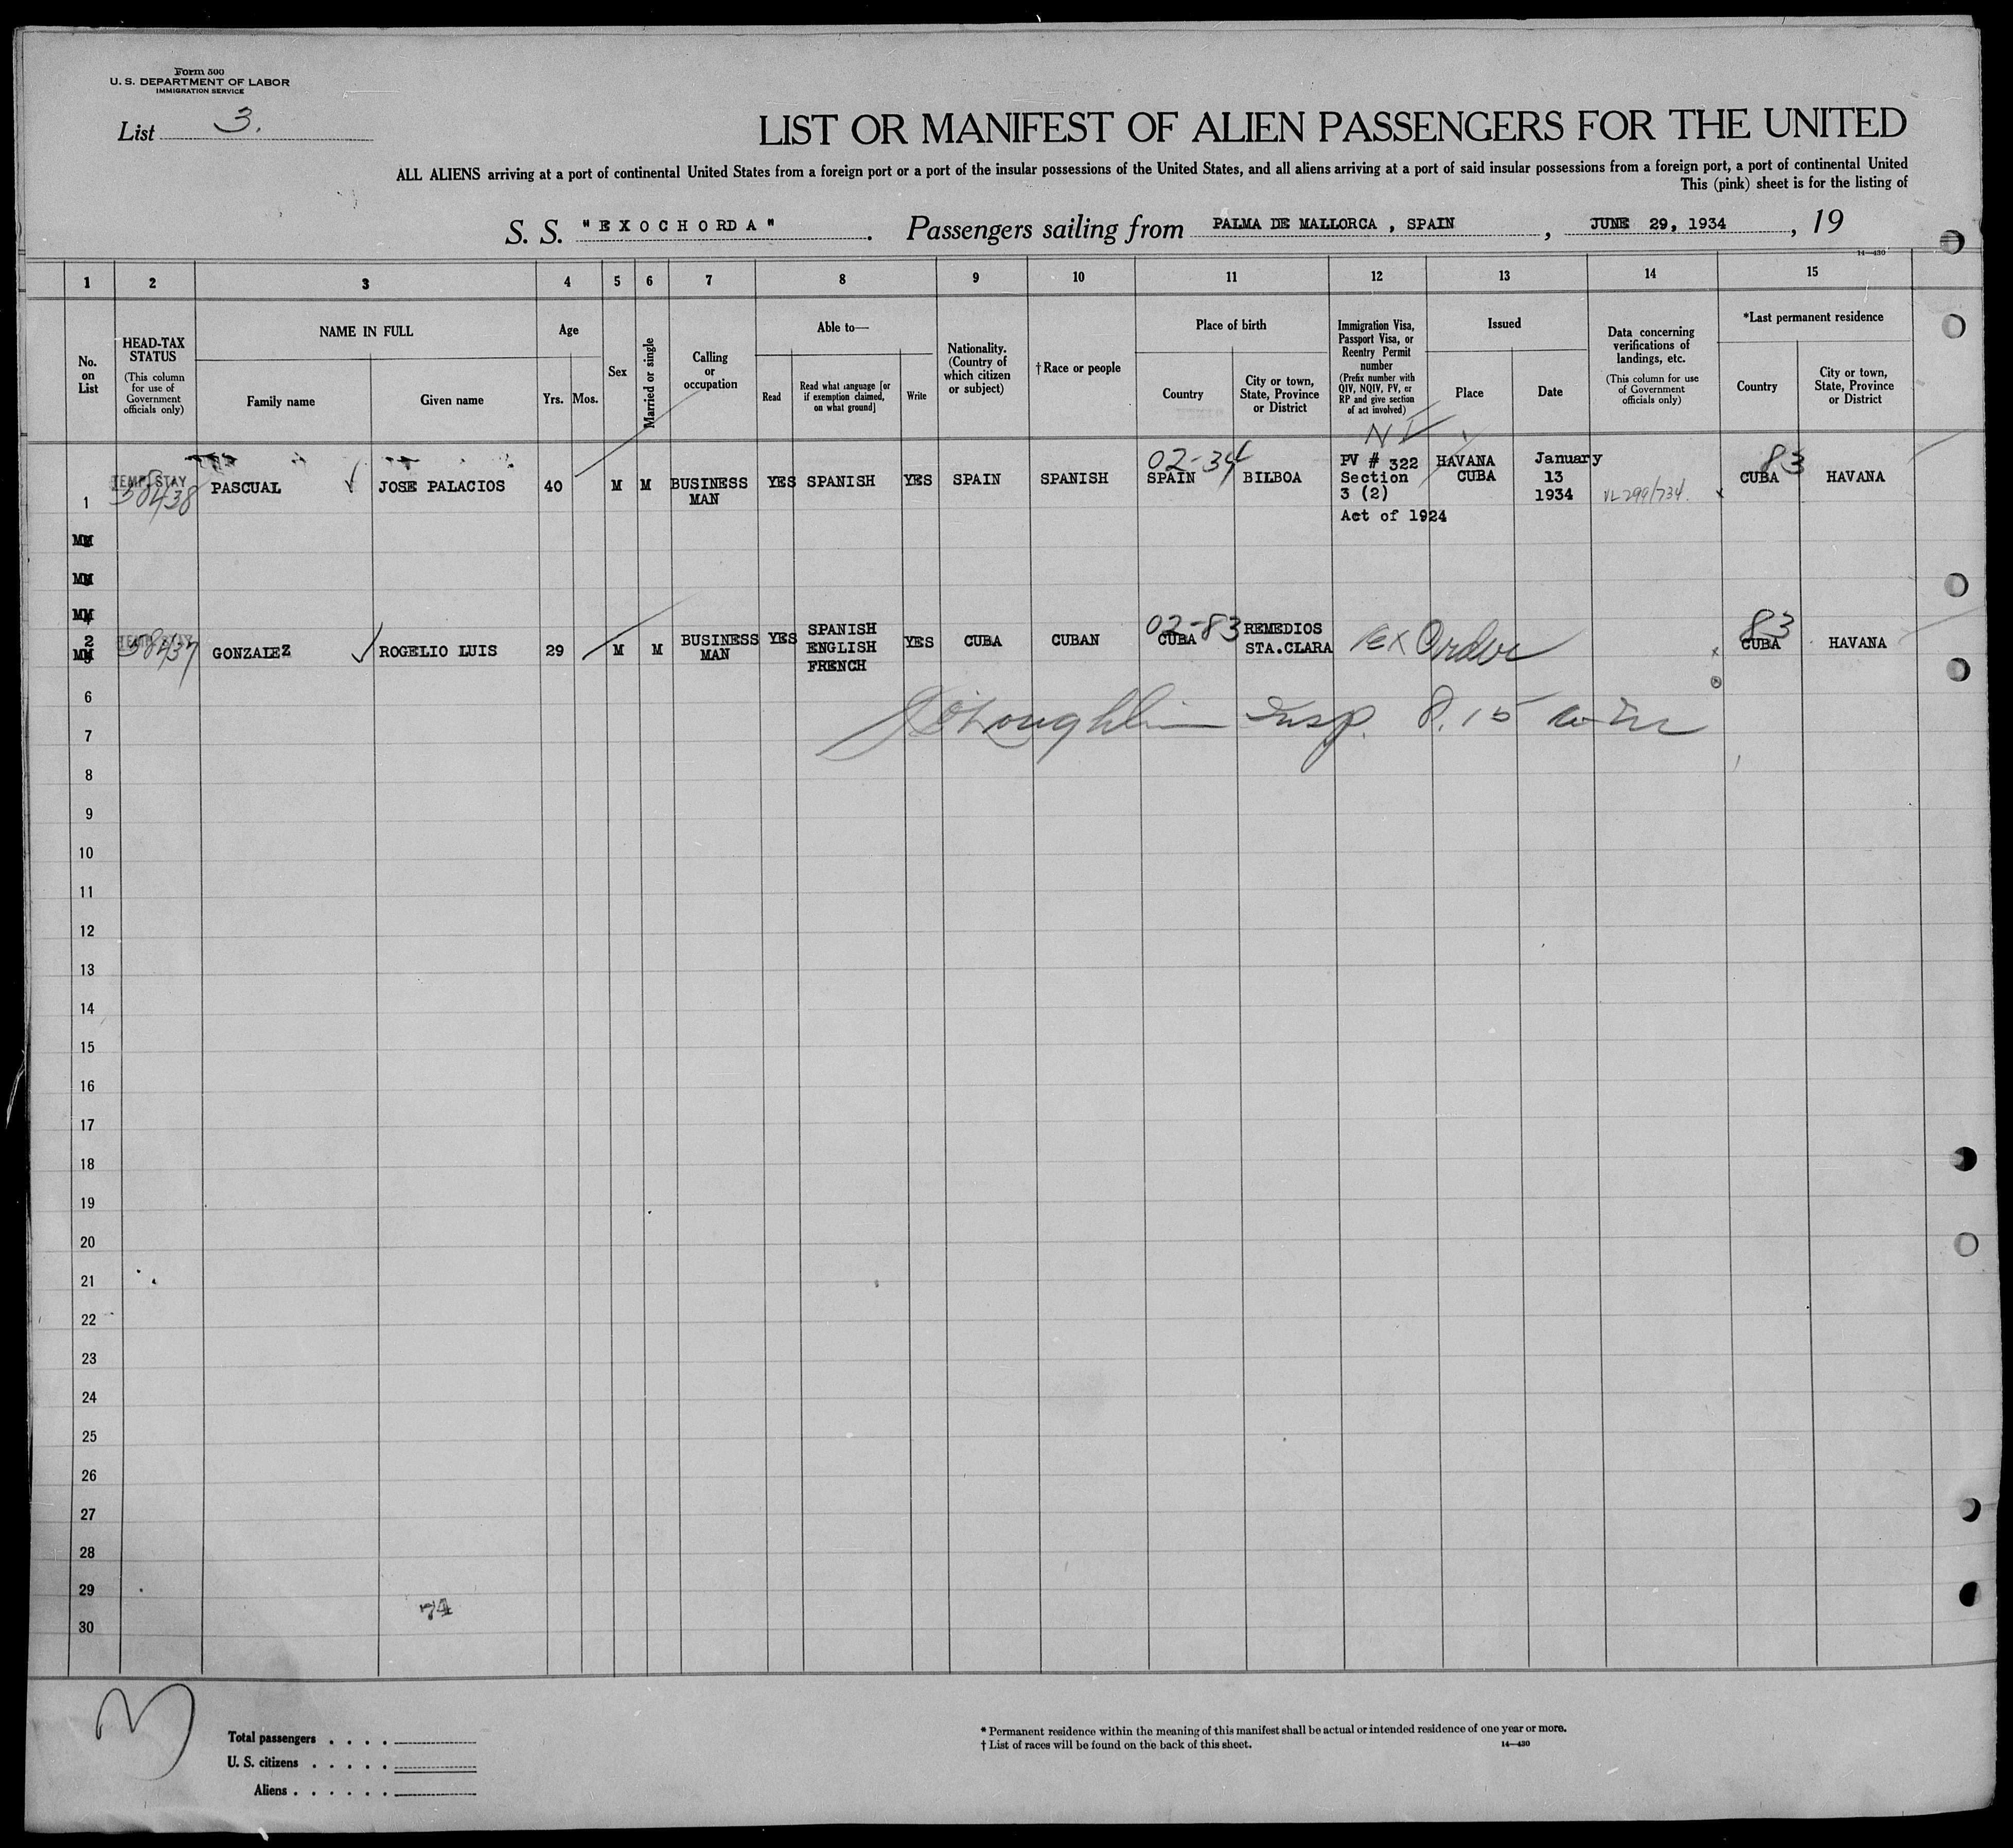 Form 500
U. S. DEPARTMENT OF LABOR
IMMIGRATION SERVICE
List 3.
LIST OR MANIFEST OF ALIEN PASSENGERS FOR THE UNITED
ALL ALIENS arriving at a port of continental United States from a foreign port or a port of the insular possessions of the United States, and all aliens arriving at a port of said insular possessions from a foreign port, a port of continental United
This (pink) sheet is for the listing of
S. S. "EXOCHORDA". Passengers sailing from PALMA DE MALLORCA , SPAIN, JUNE 29, 1934, 19
14—430
1 2 3 4 5 6 7 8 9 10 11 12 13 14 15
No. on List
HEAD-TAX STATUS (This column for use of Government officials only)
NAME IN FULL
Family name
Given name
Age
Yrs.
Mos.
Sex
Married or single
Calling or occupation
Able to—
Read
Read what language [or if exemption claimed, on what ground]
Write
Nationality. (Country of which citizen or subject)
† Race or people
Place of birth
Country
City or town, State, Province or District
Immigration Visa, Passport Visa, or Reentry Permit number (Prefix number with QIV, NQIV, PV, or RP and give section of act involved)
Issued
Place
Date
Data concerning verifications of landings, etc. (This column for use of Government officials only)
*Last permanent residence
Country
City or town, State, Province or District
1 TEMP. STAY 58438 PASCUAL JOSE PALACIOS 40 M M BUSINESS MAN YES SPANISH YES SPAIN SPANISH 02-34 SPAIN BILBOA PV # 322 Section 3 (2) Act of 1924 HAVANA CUBA January 13 1934 VL299/734. 83 CUBA HAVANA
2 58437 GONZALEZ ROGELIO LUIS 29 M M BUSINESS MAN YES SPANISH ENGLISH FRENCH YES CUBA CUBAN 02-83 CUBA REMEDIOS STA.CLARA Ex Order 83 CUBA HAVANA
6
J O'Loughlin Insp. 8.15
7
8
9
10
11
12
13
14
15
16
17
18
19
20
21
22
23
24
25
26
27
28
29
74
30
Total passengers . . . .
U. S. citizens . . . . .
Aliens . . . . . .
* Permanent residence within the meaning of this manifest shall be actual or intended residence of one year or more.
† List of races will be found on the back of this sheet.
14—430